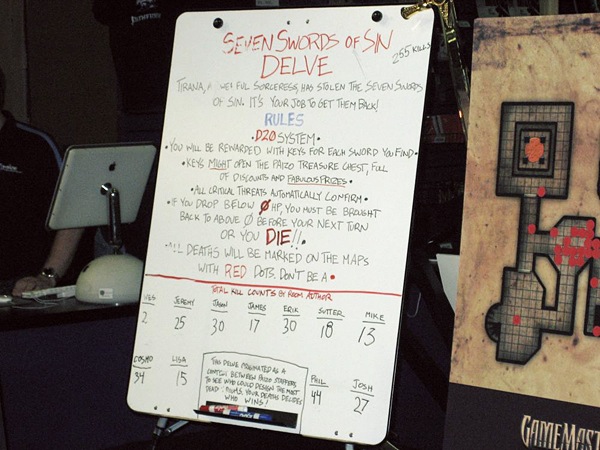 SEVEN SWORDS OF SIN
DELVE
255 KILLS
TIRANA, SORCERESS, HAS STOLEN THE SEVEN SWORDS
OF SIN. IT'S YOUR JOB TO GET THEM BACK!
RULES
• D20 SYSTEM •
• YOU WILL BE REWARDED WITH KEYS FOR EACH SWORD YOU FIND •
• KEYS MIGHT OPEN THE PAIZO TREASURE CHEST, FULL
OF DISCOUNTS AND FABULOUS PRIZES •
• ALL CRITICAL THREATS AUTOMATICALLY CONFIRM •
• IF YOU DROP BELOW 0 HP, YOU MUST BE BROUGHT
BACK TO ABOVE 0 BEFORE YOUR NEXT TURN
OR YOU DIE!!
DEATHS WILL BE MARKED ON THE MAPS
WITH RED DOTS. DON'T BE A •
TOTAL KILL COUNTS BY ROOM AUTHOR
JEREMY JASON JAMES ERIK SUTTER MIKE
2 25 30 17 30 18 13
COSMO LISA PHIL JOSH
34 15 44 27
THIS DELVE ORIGINATED AS A
BETWEEN PAIZO STAFFERS
TO SEE WHO COULD DESIGN THE MOST
YOUR DEATHS DECIDES
WHO WINS!
GAMEMAST